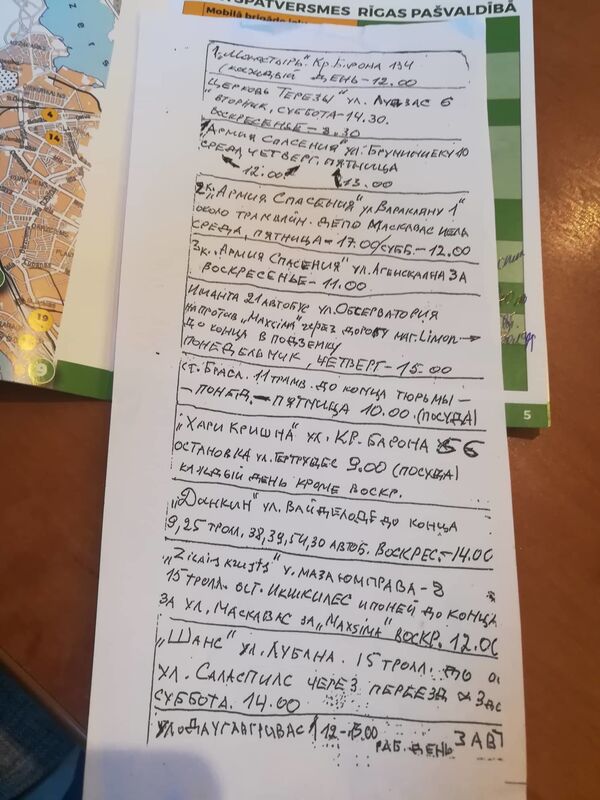 SPATVERSMES RĪGAS PAŠVALDĪBĀ
Mobilā brigāde
"Монастырь" Кр. Барона 134
(каждый день-12.00
Церковь Терезы" ул. 6
вторник, суббота-14.30.
Воскресенье - 8.30
"Армия Спасения" ул. Брунинеку 10
Среда, четверг. пятница
12.00 13.00
2к. "Армия Спасения" ул Варакляну 1"
около трамвайн. депо Маскавас иела
Среда, пятница - 17.00 субб. - 12.00
3к. "Армия Спасения" ул. Агенскална 3А
Воскресенье - 11.00
Иманта 21 автобус ул. Обсерватория
напротив "Maxsima" через дорогу маг. Limon
до конца в подземку
Понедельник, четверг - 15.00
ст. Брасл. 11 трамв. до конца тюрьмы -
- понед. - пятница 10.00. (посуда)
"Хари Кришна" ул. Кр. Барона 56
остановка ул. Гертрудес 9.00 (посуда)
каждый день кроме воскр.
"Данкин" ул. до конца
9, 25 тролл, 38, 39, 54, 30 автоб. Воскрес. - 14.00
"Zilais krusts" у. Маза Юмправа - 8
15 тролл. ост. Икшкилес до конца
за ул. Маскавас за "Maxsima" воскр. 12.00
"Шанс" ул. Лубана. 15 тролл. до
ул. Саласпилс через переезд
Суббота. 14.00
12-15.00
раб. день ЗАВТ
4
14
19
9
5